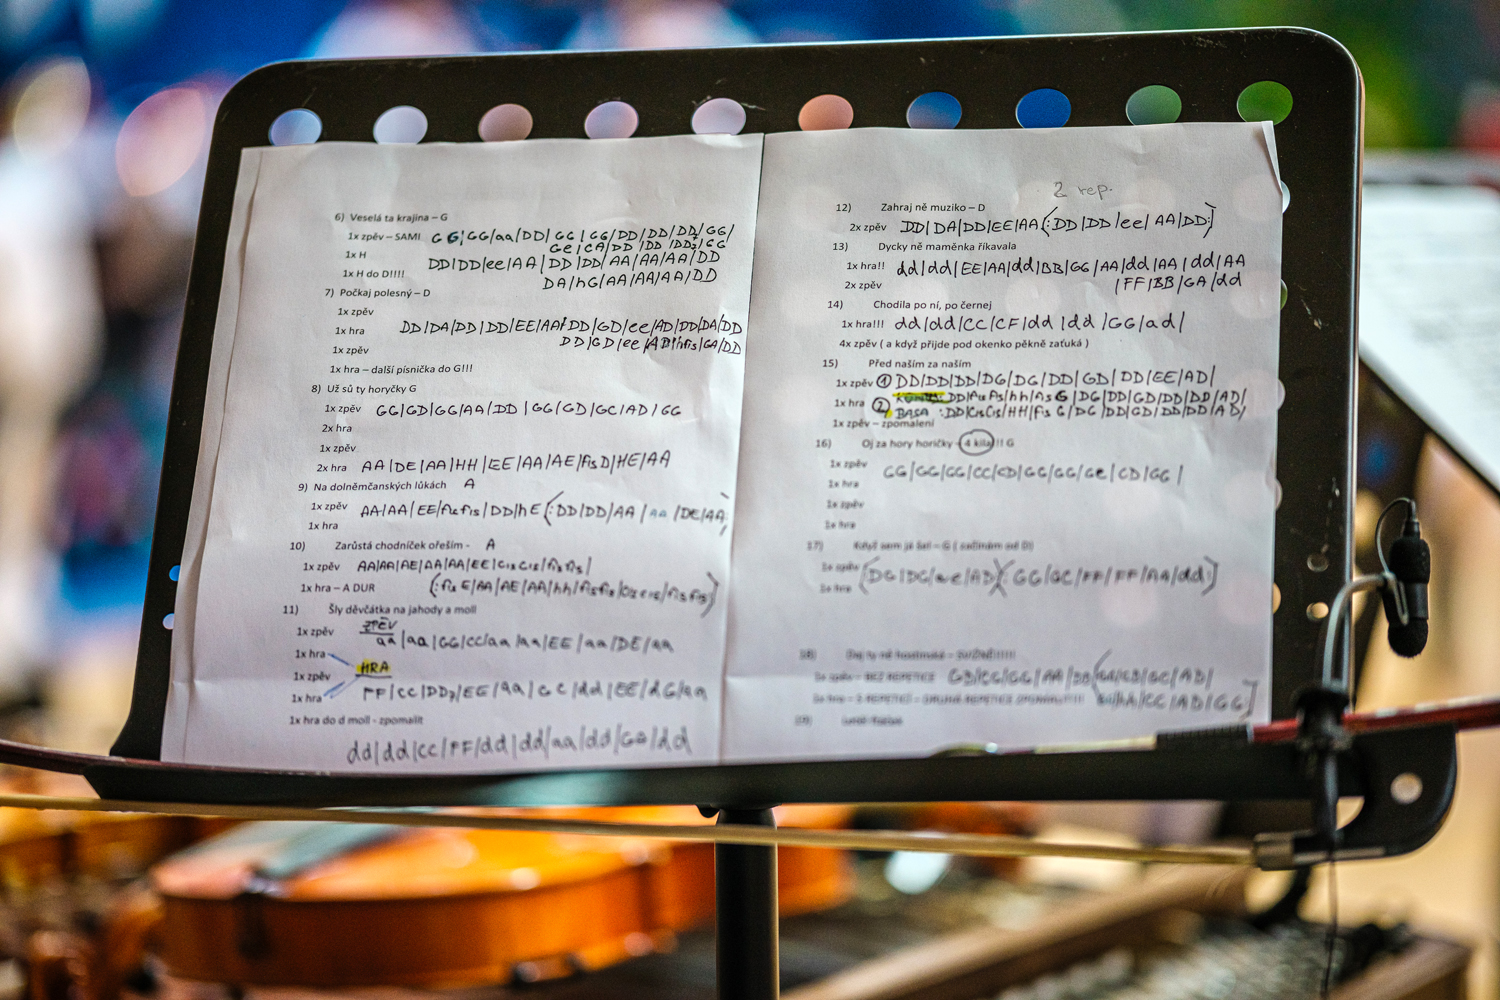 6) Veselá ta krajina – G
1x zpěv – SAMI GG/GG/aa/DD/GG/GG/DD/DD/DD₇/GG/
Ge/CA/DD/DD/DD₇/GG
1x H DD/DD/ee/AA/DD/DD/AA/AA/AA/DD
1x H do D!!!! DA/hG/AA/AA/AA/DD
7) Počkaj polesný – D
1x zpěv
1x hra DD/DA/DD/DD/EE/AA/DD/GD/ee/AD/DD/DA/DD
1x zpěv DD/GD/ee/AD/hfis/GA/DD
1x hra – další písnička do G!!!
8) Už sú ty horyčky G
1x zpěv GG/GD/GG/AA/DD/GG/GD/GC/AD/GG
2x hra
1x zpěv
2x hra AA/DE/AA/HH/EE/AA/AE/fisD/HE/AA
9) Na dolněmčanských lúkách A
1x zpěv AA/AA/EE/fisfis/DD/hE(:DD/DD/AA/aa/DE/AA:
1x hra
10) Zarůstá chodníček ořeším - A
1x zpěv AA/AA/AE/AA/AA/EE/cis cis/fis fis/
1x hra – A DUR (:fisE/AA/AE/AA/hh/fisfis/ciscis/fisfis:)
11) Šly děvčátka na jahody a moll
1x zpěv ZPĚV
aa/aa/GG/CC/aa/aa/EE/aa/DE/aa
1x hra
1x zpěv HRA
1x hra FF/CC/DD₇/EE/aa/GC/dd/EE/dG/aa
1x hra do d moll - zpomalit
dd/dd/CC/FF/dd/dd/aa/dd/Ga/dd
2 rep.
12) Zahraj ně muziko – D
2x zpěv DD/DA/DD/EE/AA(:DD/DD/ee/AA/DD:)
13) Dycky ně maměnka říkavala
1x hra!! dd/dd/EE/AA/dd/BB/GG/AA/dd/AA/dd/AA
2x zpěv /FF/BB/GA/dd
14) Chodila po ní, po černej
1x hra!!! dd/dd/CC/CF/dd/dd/GG/ad/
4x zpěv ( a když přijde pod okenko pěkně zaťuká )
15) Před naším za naším
1x zpěv ① DD/DD/DD/DG/DG/DD/GD/DD/EE/AD/
1x hra ② DD/fis fis/hh/fisG/DG/DD/GD/DD/DD/AD/
BASA :DD/CisCis/HH/fisG/DG/DD/GD/DD/DD/AD/
1x zpěv – zpomalení
16) Oj za hory horičky – 4 kila!!! G
1x zpěv GG/GG/GG/CC/CD/GG/GG/Ge/CD/GG/
1x hra
1x zpěv
1x hra
17) Když sem já šel – G ( začínám od D)
(DG/DG/ae/AD)(GG/GC/FF/FF/AA/dd:)
18)
19)